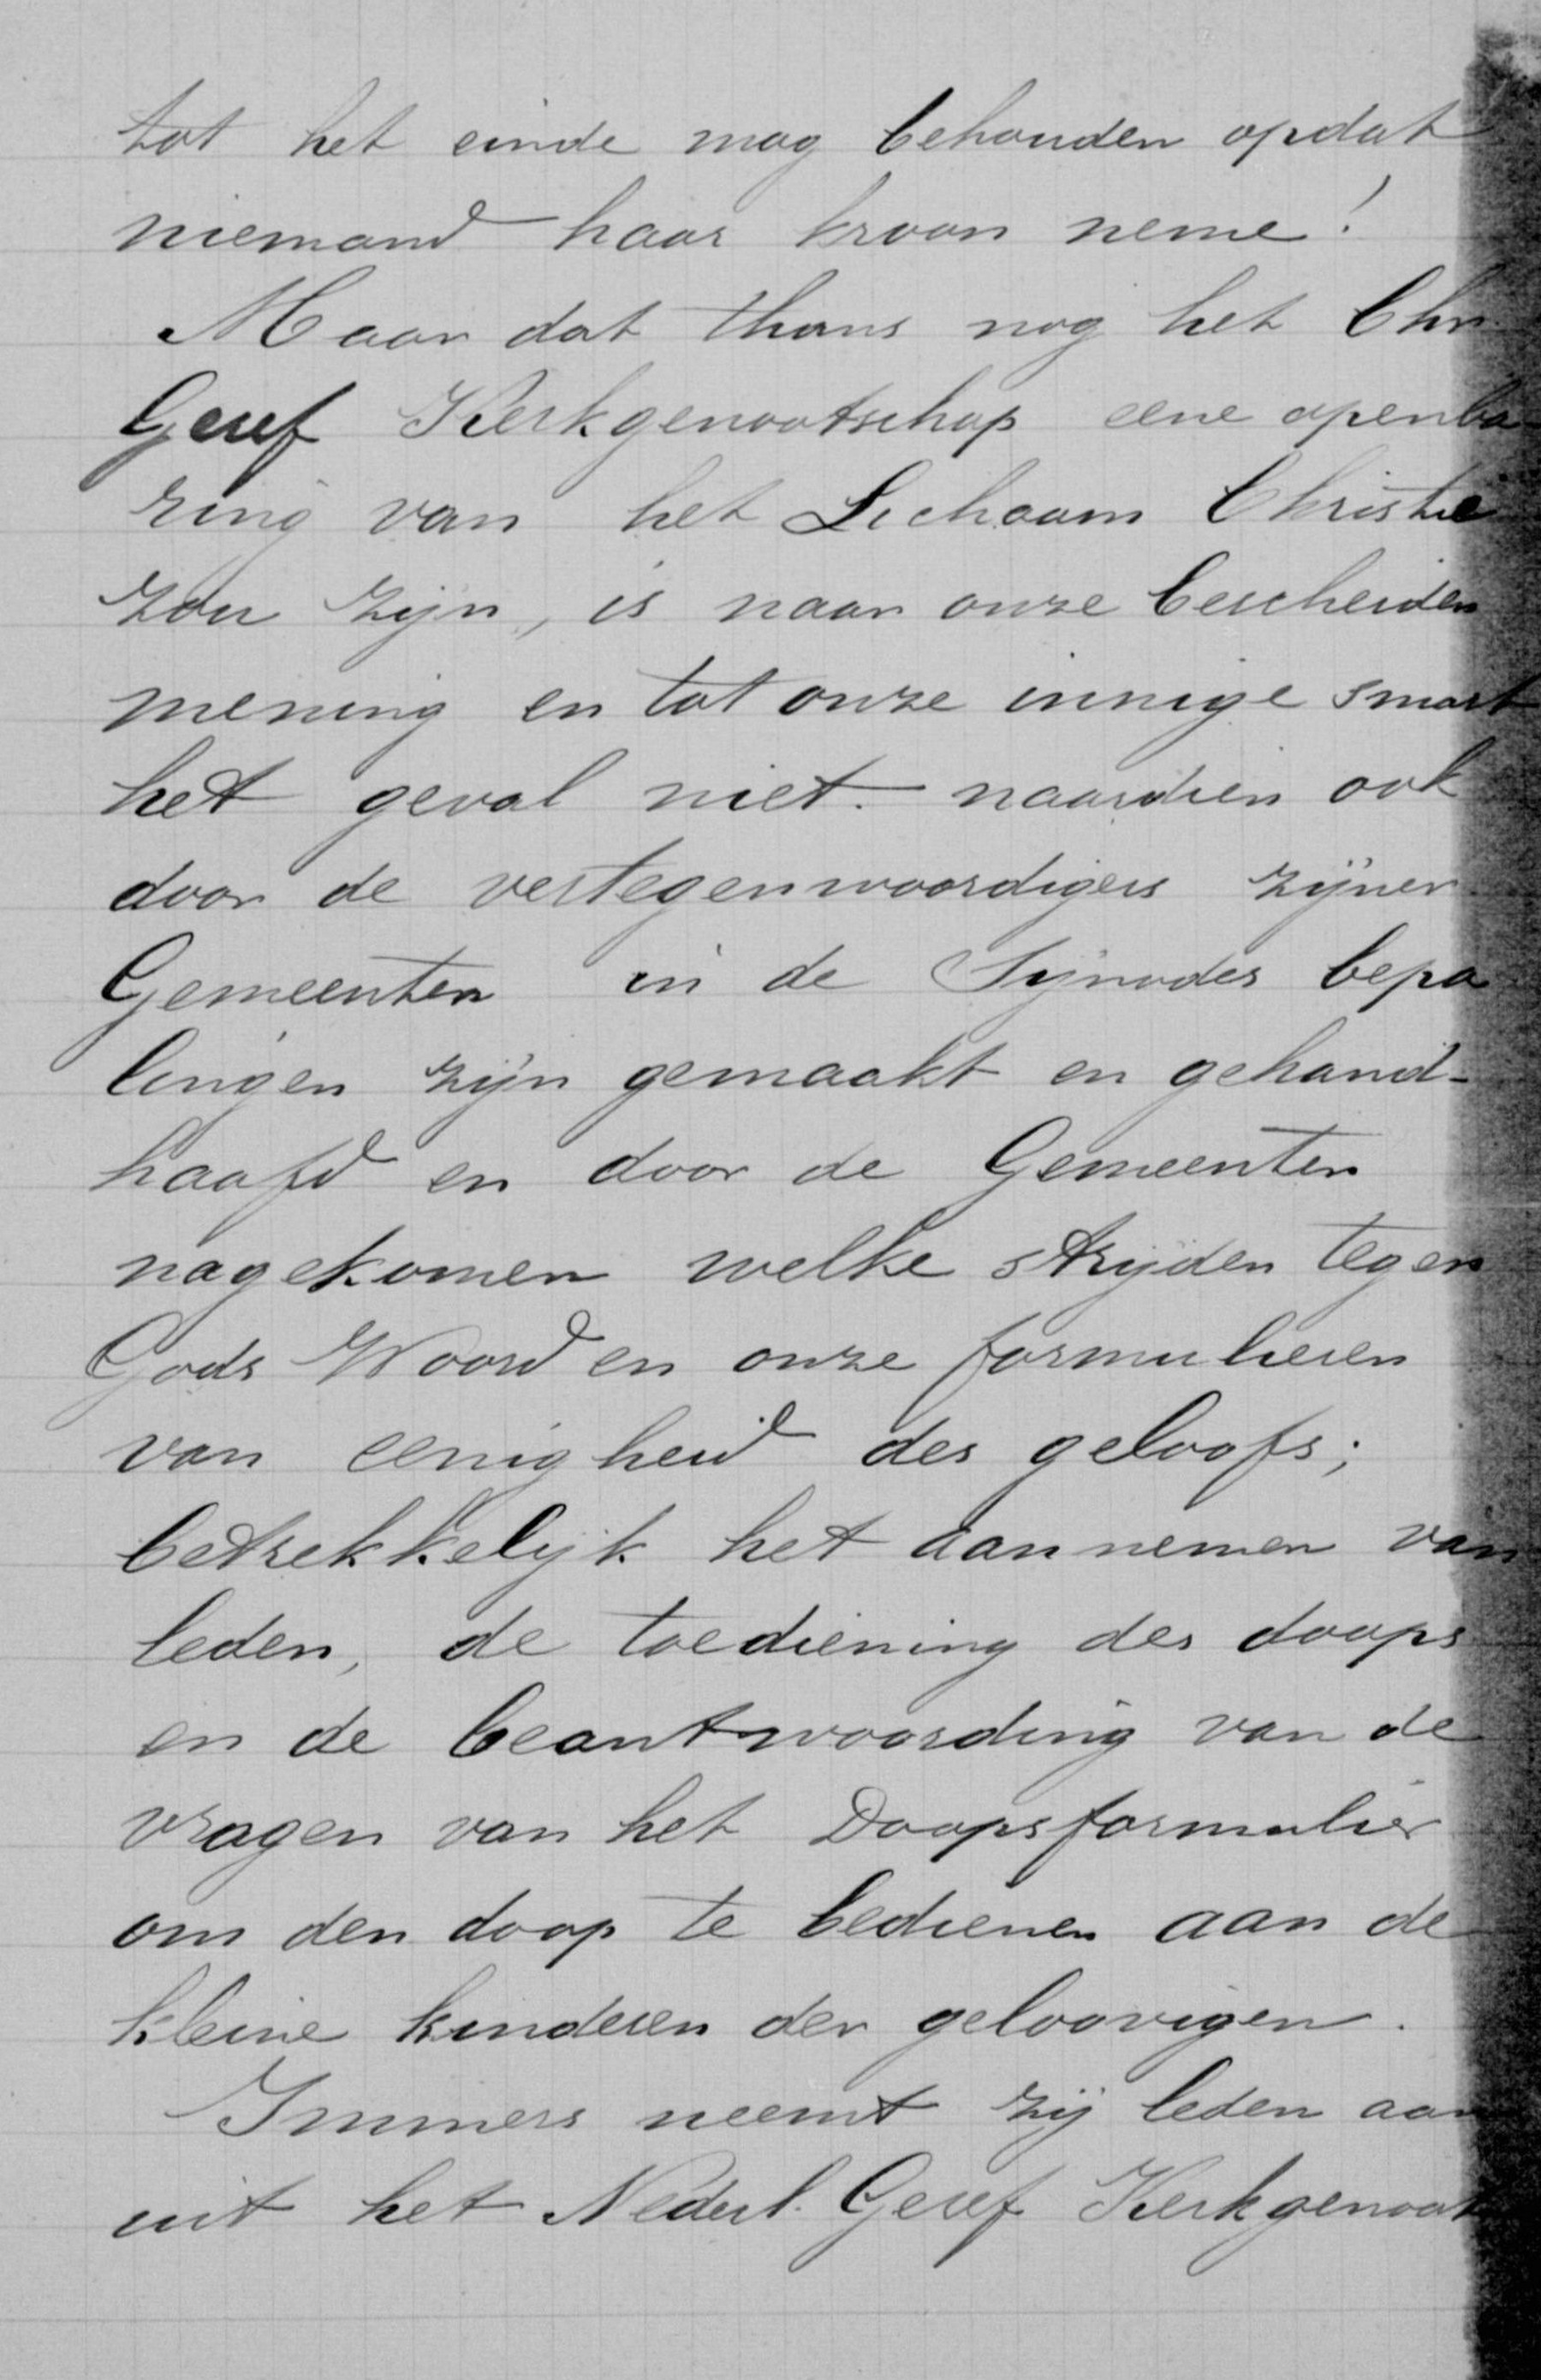 tot het einde mag behouden opdat
niemand haar kroon neme!
Maar dat thans nog het Chr.
Geref Kerkgenootschap eene openba-
ring van het Lichaam Christie
zou zijn, is naar onze bescheiden
mening en tot onze innige smart
het geval niet. naardien ook
door de vertegenwoordigers zijner
Gemeenten in de Sijnodes bepa
lingen zijn gemaakt en gehand-
haafd en door de Gemeenten
nagekomen welke strijden tegen
Gods Woord en onze formulieren
van eenigheid des geloofs;
betrekkelijk het aannemen van
leden, de toediening des doops
en de beantwoording van de
vragen van het Doopsformulier
om den doop te bedienen aan de
kleine kinderen der geloovigen.
Immers neemt zij leden aan
uit het Nederl. Geref Kerkgenoot